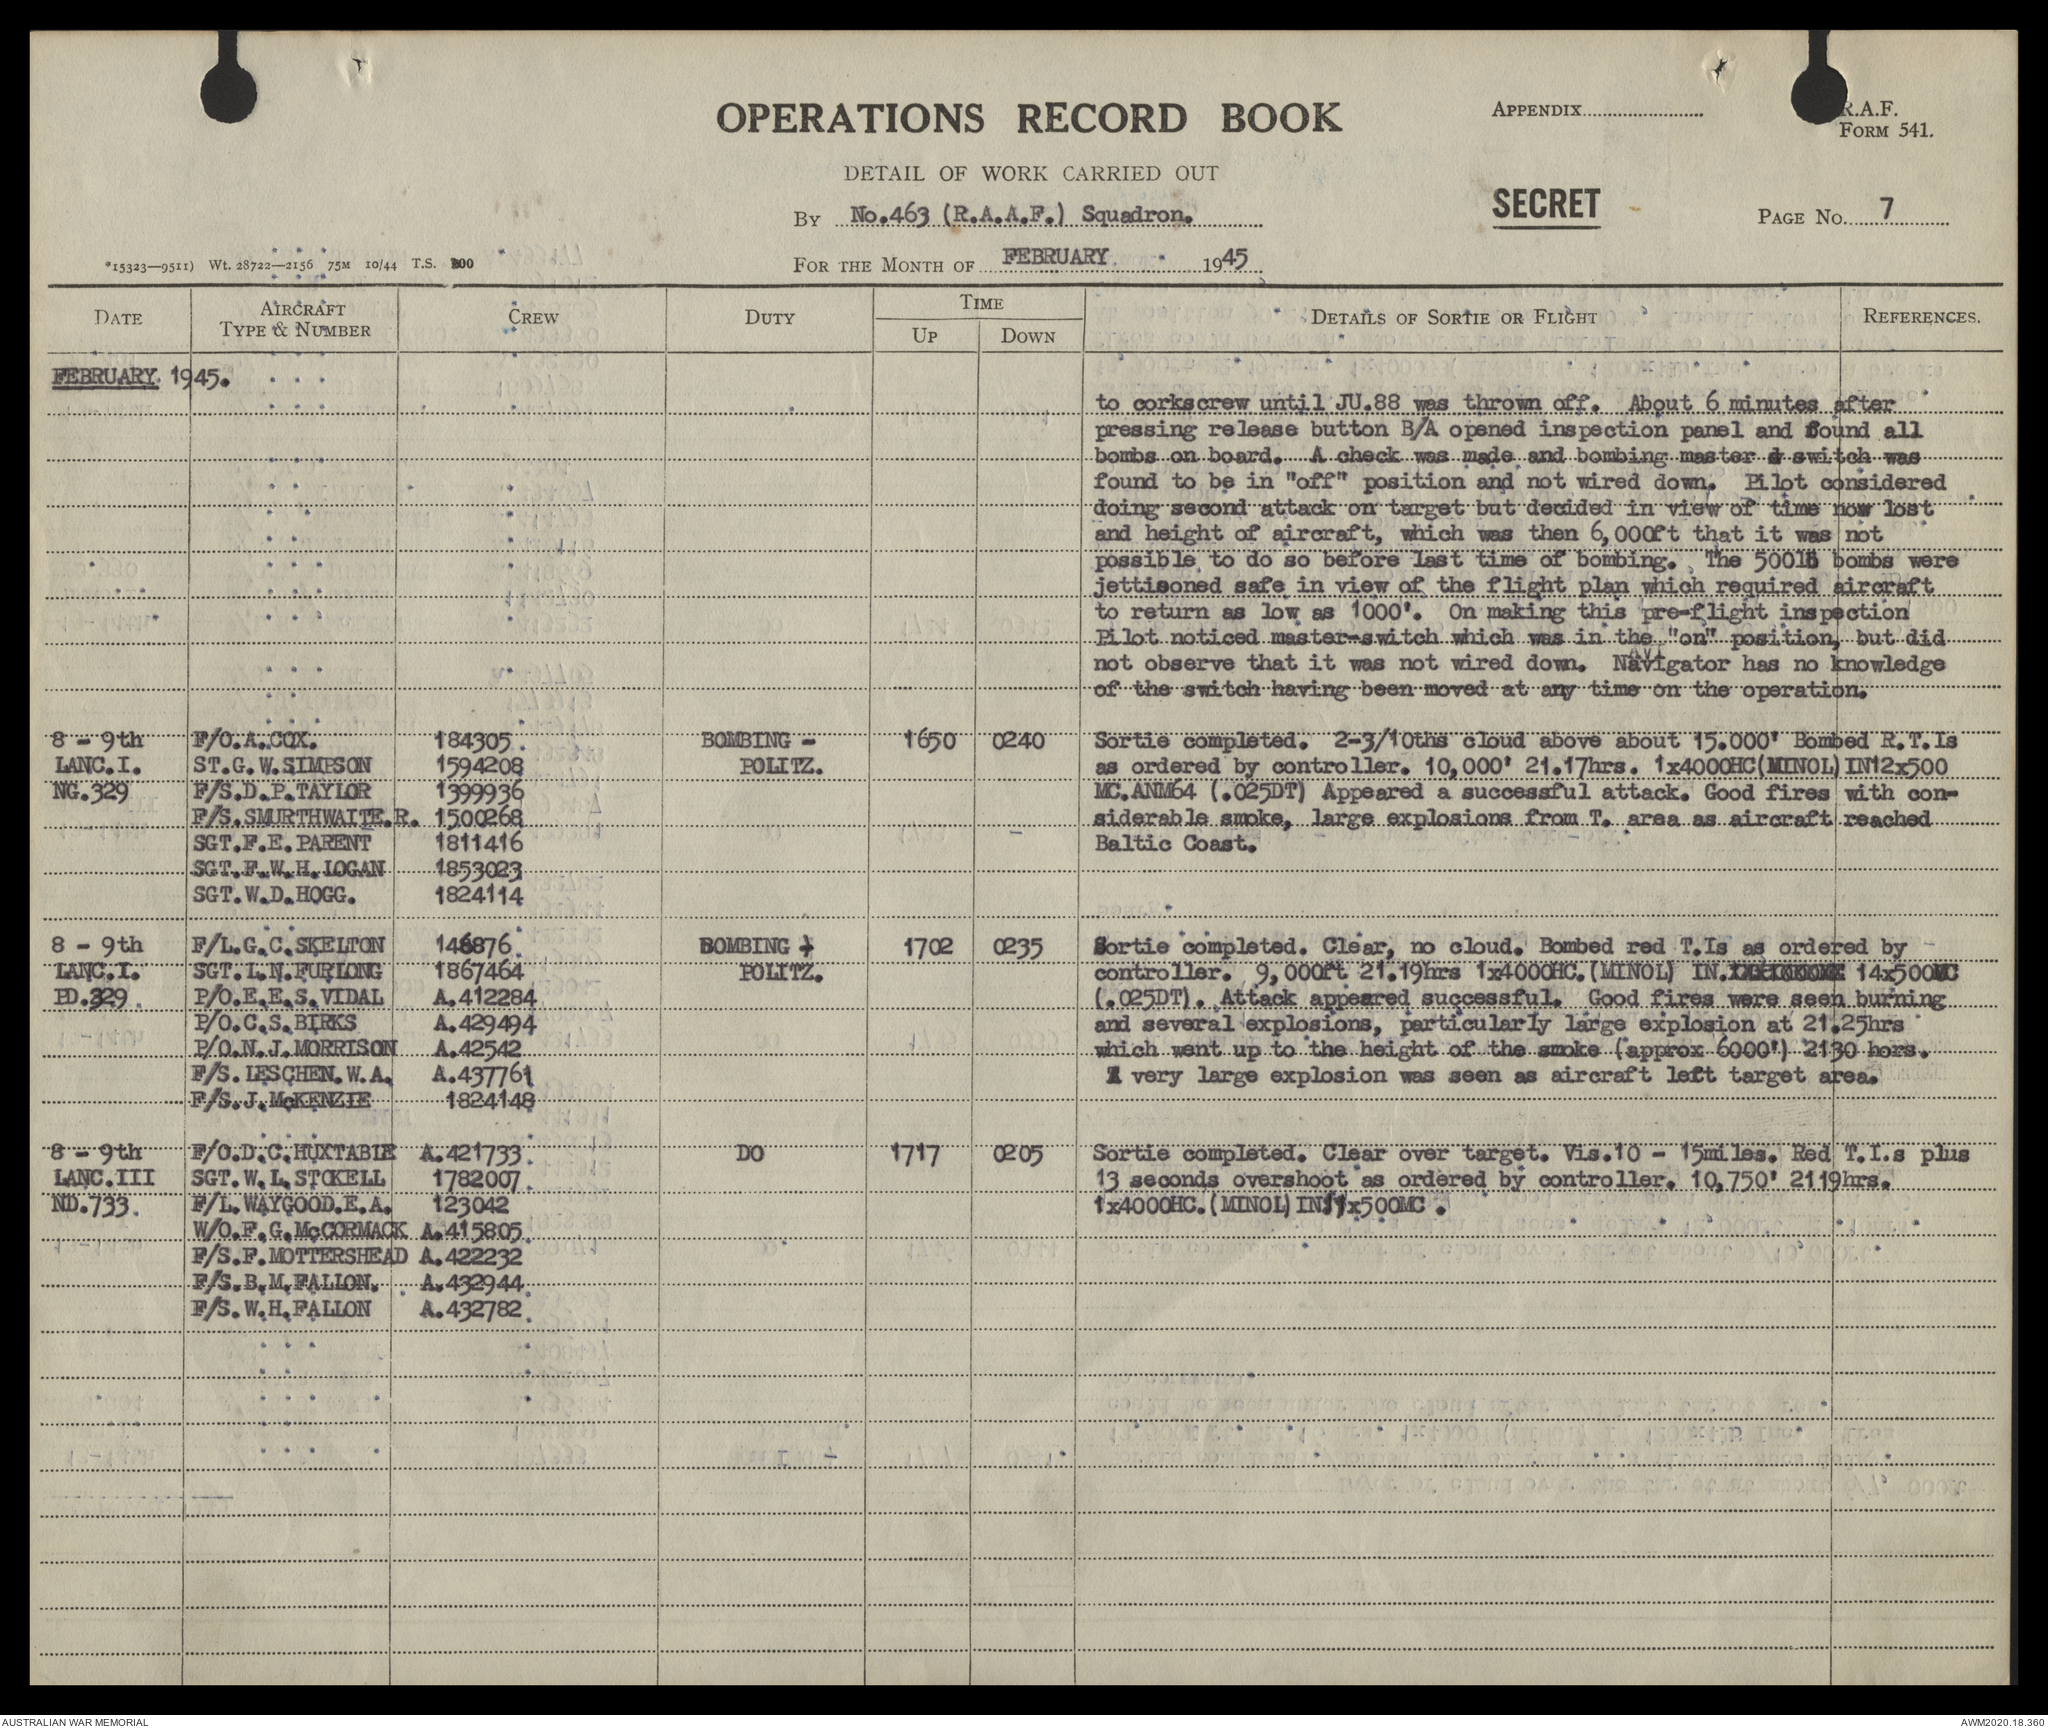 OPERATIONS RECORD BOOK
APPENDIX
R.A.F.
FORM 541.
DETAIL OF WORK CARRIED OUT
By No.463 (R.A.A.F.) Squadron.
SECRET
PAGE No. 7
*15323—9511) Wt. 28722—2156 75M 10/44 T.S.
FOR THE MONTH OF FEBRUARY 1945
DATE AIRCRAFT TYPE & NUMBER CREW DUTY TIME UP DOWN DETAILS OF SORTIE OR FLIGHT REFERENCES.
FEBRUARY 1945.
to corkscrew until JU.88 was thrown off. About 6 minutes after
pressing release button B/A opened inspection panel and found all
bombs on board. A check was made and bombing master switch was
found to be in "off" position and not wired down. Pilot considered
doing second attack on target but decided in view of time now lost
and height of aircraft, which was then 6,000ft that it was not
possible to do so before last time of bombing. The 500lb bombs were
jettisoned safe in view of the flight plan which required aircraft
to return as low as 1000'. On making this pre-flight inspection
Pilot noticed master-switch which was in the "on" position, but did
not observe that it was not wired down. Navigator has no knowledge
of the switch having been moved at any time on the operation.
8 - 9th F/O.A.COX. 184305. BOMBING - 1650 0240 Sortie completed. 2-3/10ths cloud above about 15.000' Bombed R.T.Is
LANC.I. ST.G.W.SIMPSON 1594208 POLITZ. as ordered by controller. 10,000' 21.17hrs. 1x4000HC(MINOL)IN12x500
NG.329 F/S.D.P.TAYLOR 1399936 MC.ANM64 (.025DT) Appeared a successful attack. Good fires with con-
F/S.SMURTHWAITE.R. 1500268 siderable smoke, large explosions from T. area as aircraft reached
SGT.F.E.PARENT 1811416 Baltic Coast.
SGT.F.W.H.LOGAN 1853023
SGT.W.D.HOGG. 1824114
8 - 9th F/L.G.C.SKELTON 146876. BOMBING 1702 0235 Sortie completed. Clear, no cloud. Bombed red T.Is as ordered by
LANC.I. SGT.L.N.FURLONG 1867464 POLITZ. controller. 9,000ft 21.19hrs 1x4000HC.(MINOL) IN. 14x500MC
PD.329. P/O.E.E.S.VIDAL A.412284 (.025DT). Attack appeared successful. Good fires were seen burning
P/O.C.S.BIRKS A.429494 and several explosions, particularly large explosion at 21.25hrs
P/O.N.J.MORRISON A.42542 which went up to the height of the smoke (approx 6000') 2130 hors.
F/S.LESCHEN.W.A. A.437761 A very large explosion was seen as aircraft left target area.
F/S.J.McKENZIE 1824148
8 - 9th F/O.D.C.HUXTABLE A.421733. DO 1717 0205 Sortie completed. Clear over target. Vis.10 - 15miles. Red T.I.s plus
LANC.III SGT.W.L.STOKELL 1782007. 13 seconds overshoot as ordered by controller. 10,750' 2119hrs.
ND.733. F/L.WAYGOOD.E.A. 123042 1x4000HC.(MINOL)IN11x500MC.
W/O.F.G.McCORMACK A.415805.
F/S.F.MOTTERSHEAD A.422232
F/S.B.M.FALLON. A.432944
F/S.W.H.FALLON A.432782.
AUSTRALIAN WAR MEMORIAL
AWM2020.18.360